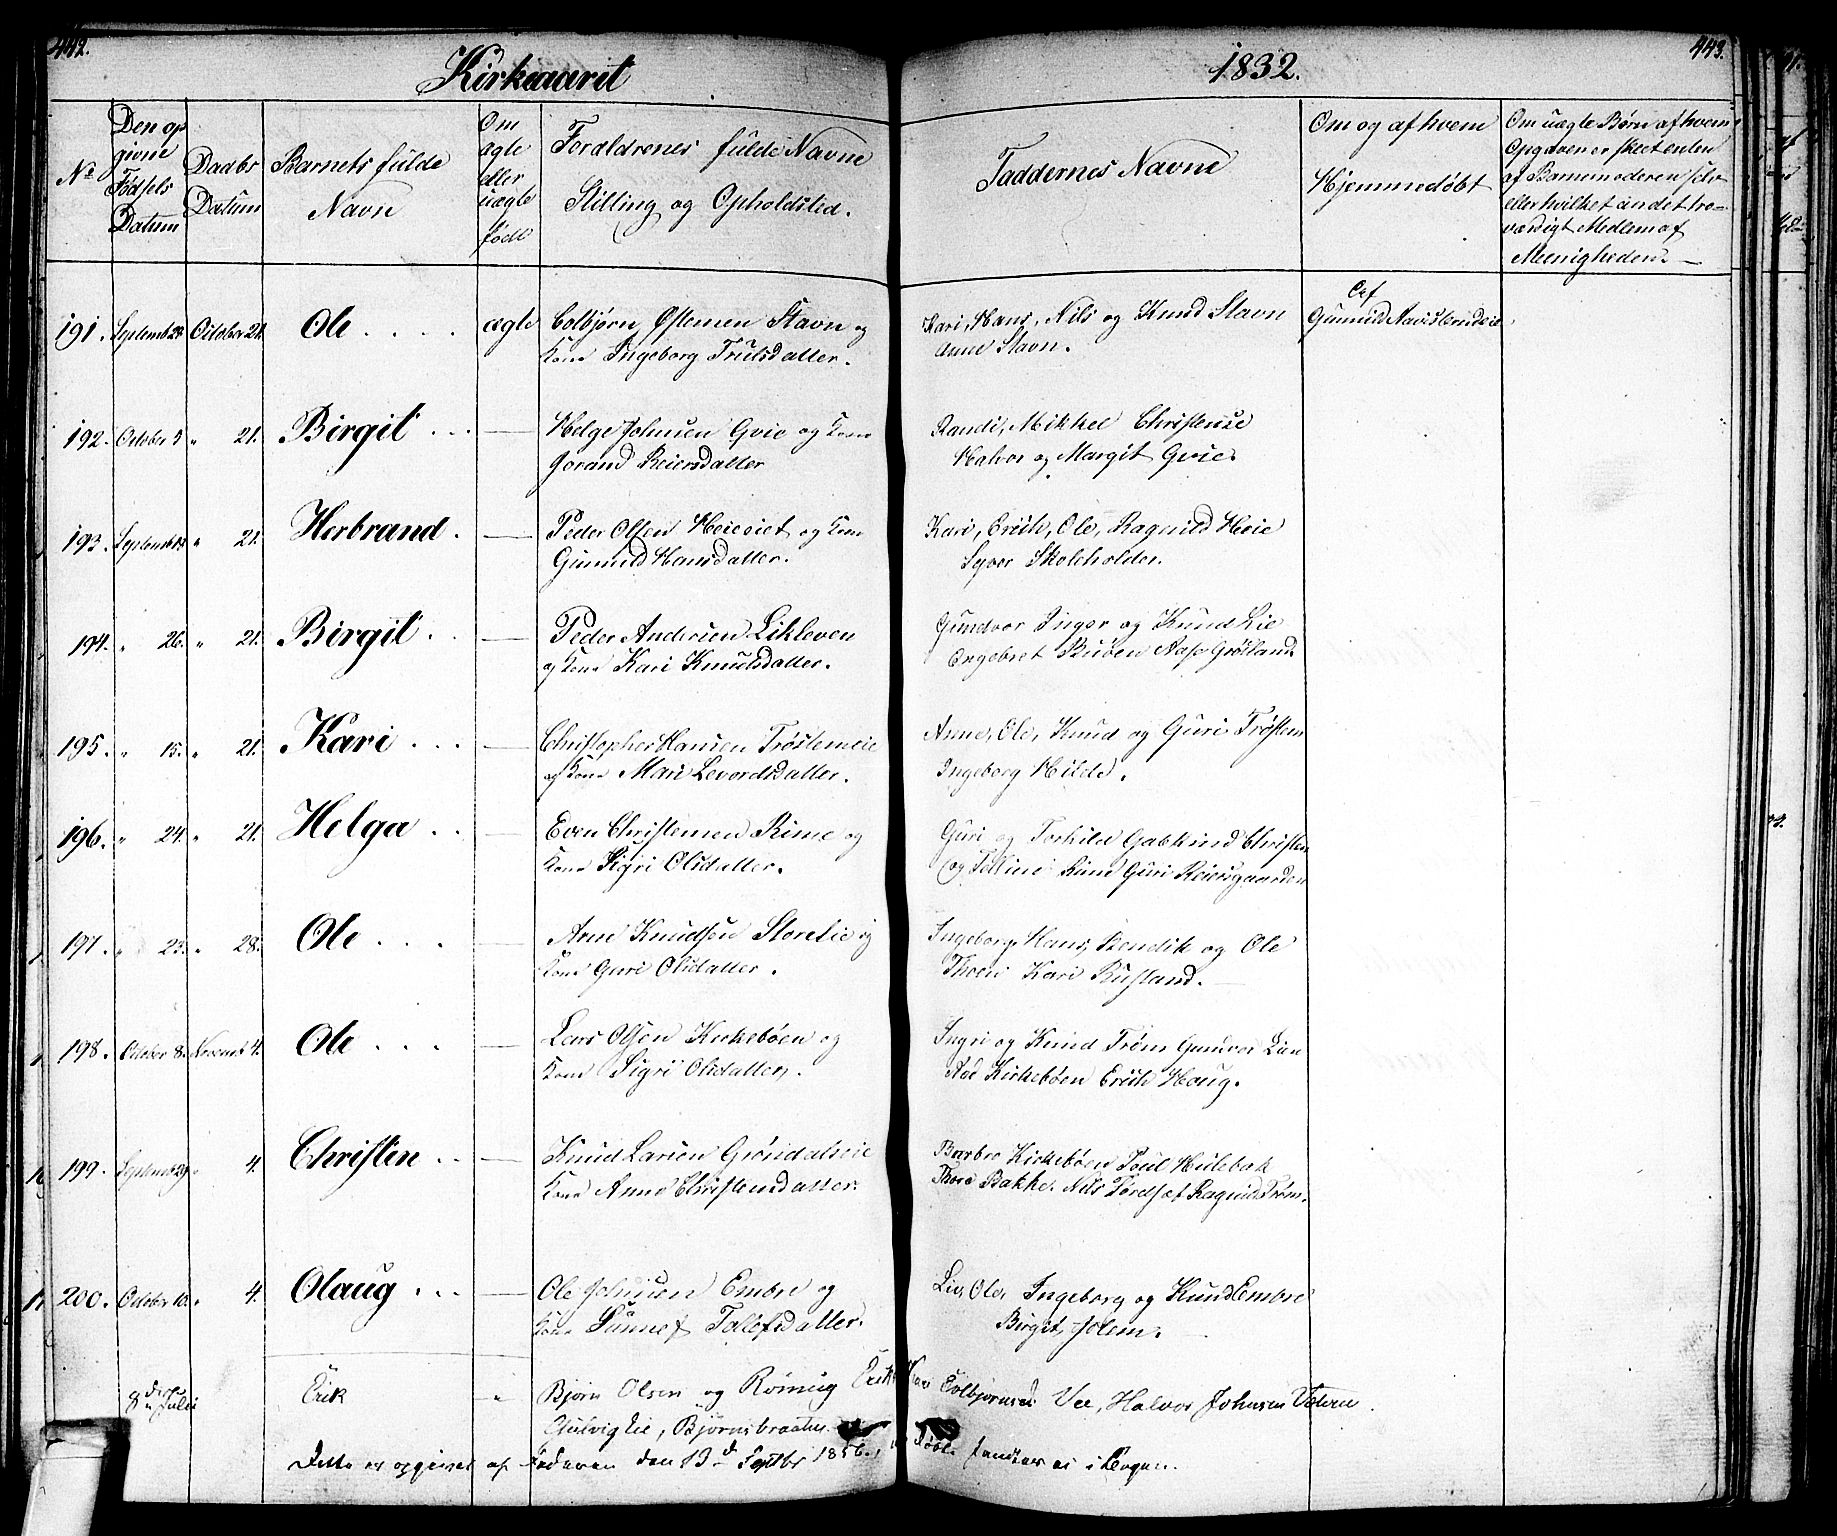 442.
Kirkeaaret
1832.
443.
No
Den op
givne
Fødsels
Datum
Daabs
Datum
Barnets fulde
Navn
Om
ægte
eller
uægte
født
Forældrenes fulde Navne
Stilling og Opholdsted.
Faddernes Navne
Om og af hvem
Hjemmedøbt
Om uægte Børn af hvem
Opgaven er skeet enten
af Barnemoderen selv
eller hvilket andet tro-
værdigt Medlem af
Meenigheden.
191. Septemb 24 October 21. Ole . . . . ægte Colbjørn Østensen Stavn og
Kone Ingeborg Trulsdatter.
Kari, Hans, Nils og Knud Stavn
Anne Stavn.
Af
Gunnild
192. October 3 " 21. Birgit . . . — Helge Johnsen Gvie og Kone
Jorand Reiersdatter
Randi, Mikkel Christense
Halvor og Margit Gvie.
193. Septemb 18 " 21. Herbrand . — Peder Olsen Heieeiet og Kone
Gunnild Hansdatter.
Kari, Erich, Ole, Ragnild Heie
Syver Skoleholder.
194. " 26. " 21. Birgit . . — Peder Andersen Likleven
og Kone Kari Knudsdatter.
Gundvor Inger og Knud Lie
Engebret Ruden Aase Grøtland.
195. " 15. " 21. Kari . . . — Christopher Hansen Trøstemeie
og Kone Mari Levordsdatter.
Anne, Ole, Knud og Guri Trøstem
Ingeborg Hilde.
196. " 24. " 21. Helga . . — Even Christensen Rime og
Kone Sigri Olsdatter.
Guri og Torhild Christen
og Rime Guri Reiersgaarden
197. " 23. " 28. Ole . . . — Arne Knudsen Storelie og
Kone Guri Olsdatter.
Ingeborg, Hans, Bendik og Ole
Thoen Kari Rustand.
198. October 8. Novemb 4. Ole . . . — Lars Olsen Kirkebøen og
Kone Sigri Olsdatter.
Ingri og Knud Trøm Gunvor Lien
Kirkebøen Erich Houg.
199. Septemb 29 " 4. Christen . . — Knud Larsen Grøndalseie
Kone Anne Christensdatter.
Barbro Kirkebøen Poul Hulebak
Thore Bakke. Nils Ragnild Trøm.
200. October 10. " 4. Olaug . . . — Ole Johnsen Embre og
Kone Sunnef Tolofsdatter.
Liv, Ole, Ingeborg og Knud Embre
Birgit Jolem.
8de Juli Erik " Bjørn Olsen og Rønnug Erik Kari Colbjørnsen Vee, Halvor Johnsen
Gulviglie, Bjørnsbraaten
Dette er opgivet af Faderen den 13de Septbr 1856., fandtes ei i Bogen.